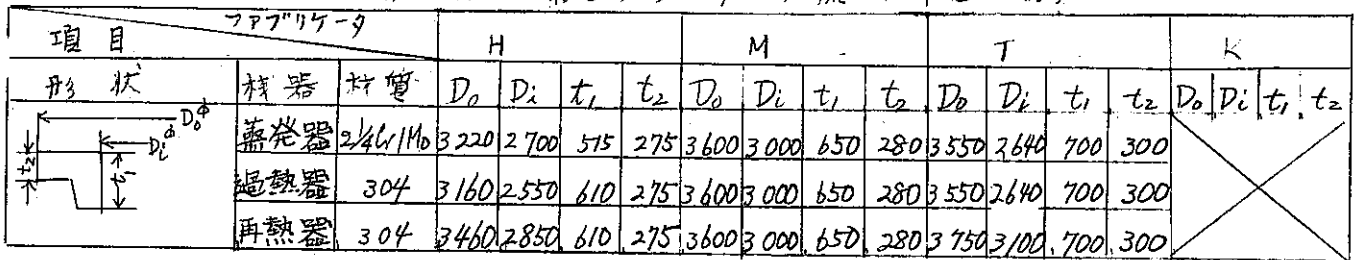 項目 ファブリケータ H M T K
形状 機器 材質 D₀ Di t₁ t₂ D₀ Di t₁ t₂ D₀ Di t₁ t₂ D₀ Di t₁ t₂
D₀φ Diφ t₂ t₁
蒸発器 2¼Cr1Mo 3220 2700 515 275 3600 3000 650 280 3550 2640 700 300
過熱器 304 3160 2550 610 275 3600 3000 650 280 3550 2640 700 300
再熱器 304 3460 2850 610 275 3600 3000 650 280 3750 3100 700 300